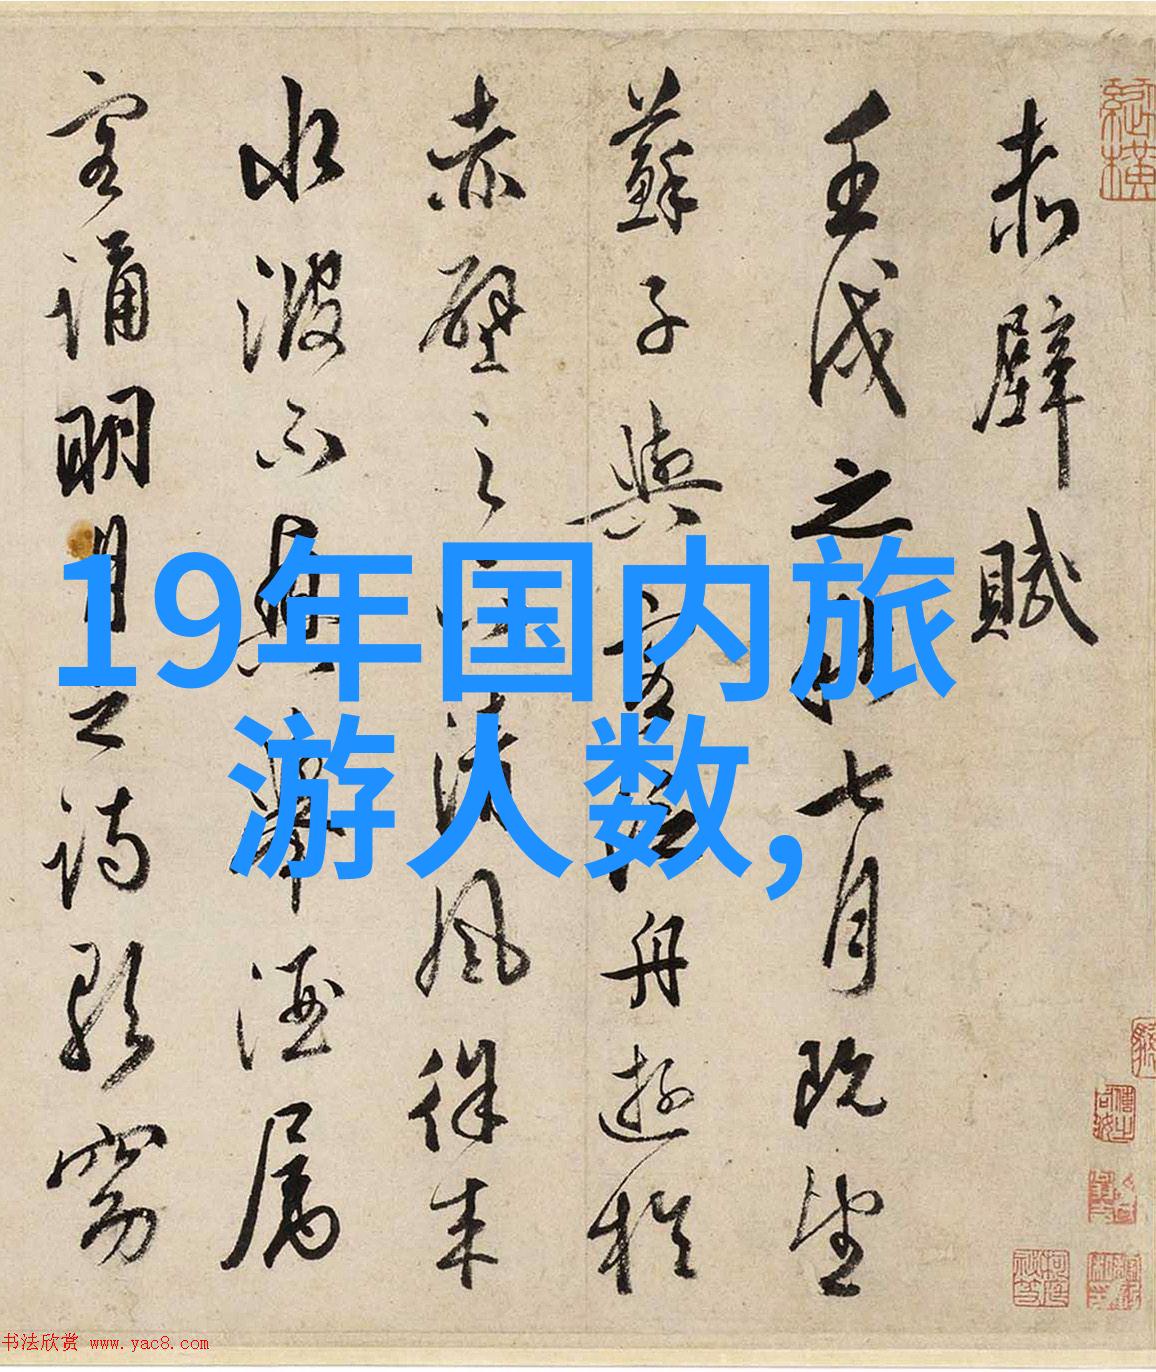 赤壁賦
壬戌之秋七月既望
蘇子與客泛舟遊於
赤壁之下清風徐來
水波不興舉酒属
客誦明月之詩歌窈
19年国内旅
游人数,
书法欣赏 www.yac8.com